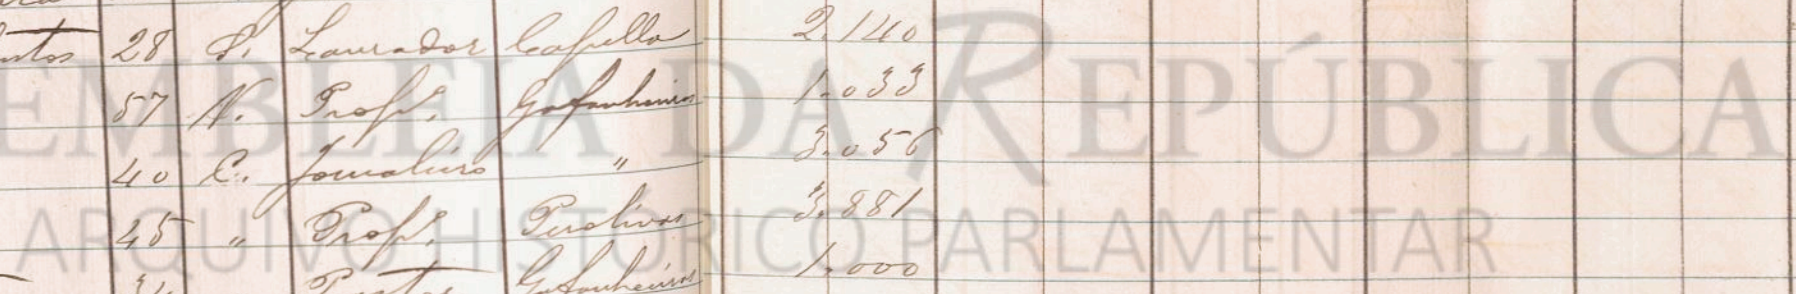 28 S. Lavrador Capella 2.140
57 V. Propº. Gafanhoeiras 1.033
40 C. Jornaleiro " 3.056
45 " Propº. Perolivas 3.881
Gafanhoeiras 1.000
ASSEMBLEIA DA REPÚBLICA
ARQUIVO HISTÓRICO PARLAMENTAR